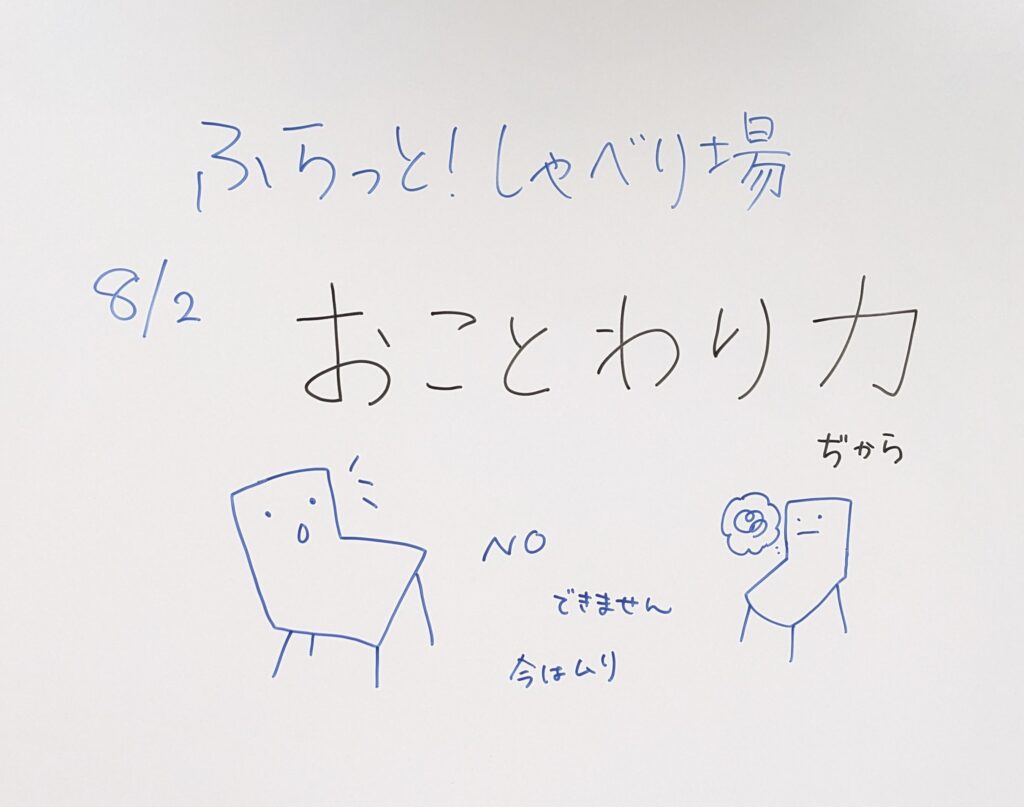 ふらっと!しゃべり場
8/2
おことわり力
ぢから
NO
できません
今はムリ